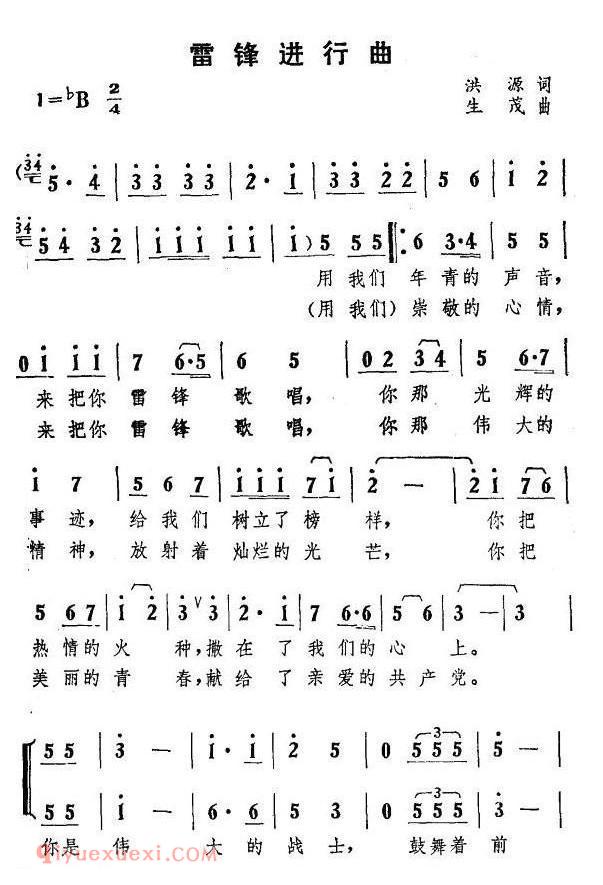 雷锋进行曲
1=♭B 2/4
洪源词
生茂曲
(34 5· 4 | 33 33 | 2· 1 | 33 22 | 5 6 | 1 2 |
34 54 32 | 11 11 | 11 11 | 1) 5 55 |: 6 3·4 | 5 5 |
用我们 年青的 声音,
(用我们)崇敬的 心情,
01 11 | 7 6·5 | 6 5 | 02 34 | 5 6·7 |
来把你 雷锋 歌唱, 你那 光辉的
来把你 雷锋 歌唱, 你那 伟大的
1 7 | 56 7 | 111 71 | 2 — | 21 76 |
事迹, 给我们 树立了榜 样, 你把
情神, 放射着 灿烂的光 芒, 你把
5 67 | 1 2 | 3∨3 | 2· 1 | 7 6·6 | 5 6 | 3 — | 3
热情的火 种,撒在了我们的心上。
美丽的青 春,献给了亲爱的共产党。
55 | 3 — | 1· 1 | 2 5 | 0 555 | 5 — |
55 | 1 — | 6· 6 | 5 3 | 0 555 | 5 — |
你是 伟 大的战士, 鼓舞着 前
qiyuexuexi.com